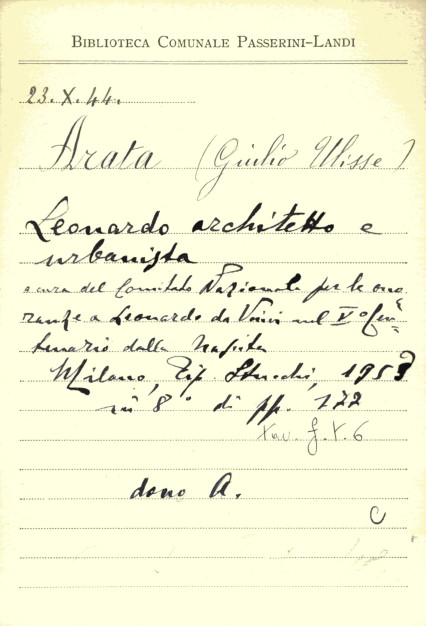 BIBLIOTECA COMUNALE PASSERINI-LANDI
23.X.44.
Arata (Giulio Ulisse)
Leonardo architetto e
urbanista
a cura del Comitato Nazionale per le ono
ranze a Leonardo da Vinci nel V° Cen=
tenario della Nascita
Milano, Tip. Stucchi, 1953
in 8° di pp. 172
tav. f.t. 6
dono A.
C